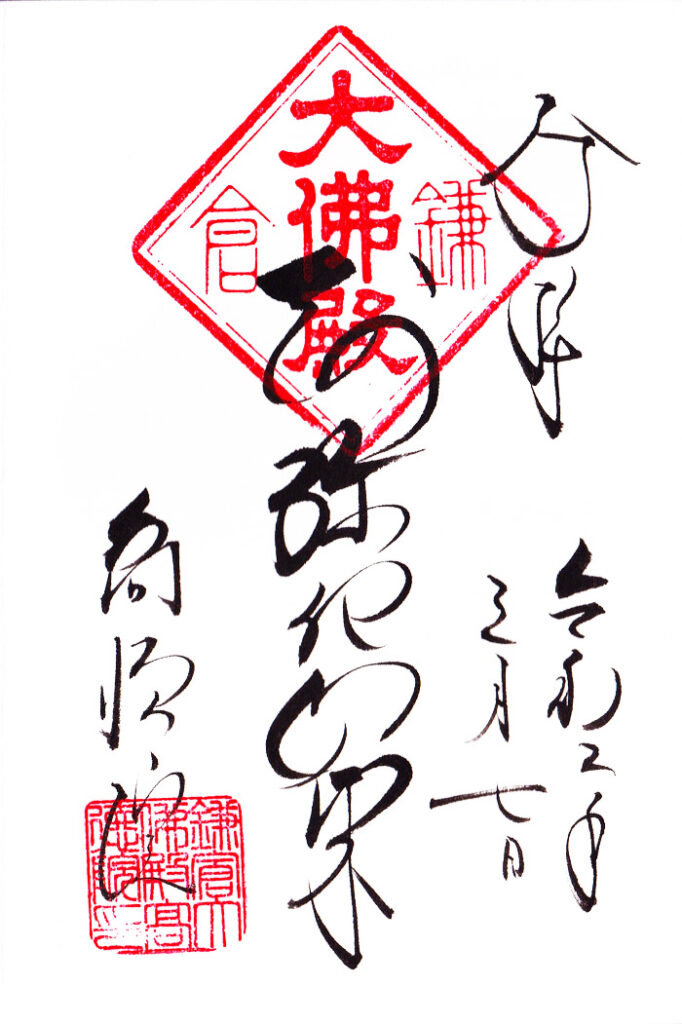 奉拝
令和二年
三月七日
大佛殿
鎌倉
阿弥陀如来
高徳院
鎌倉大
佛殿高
徳院印